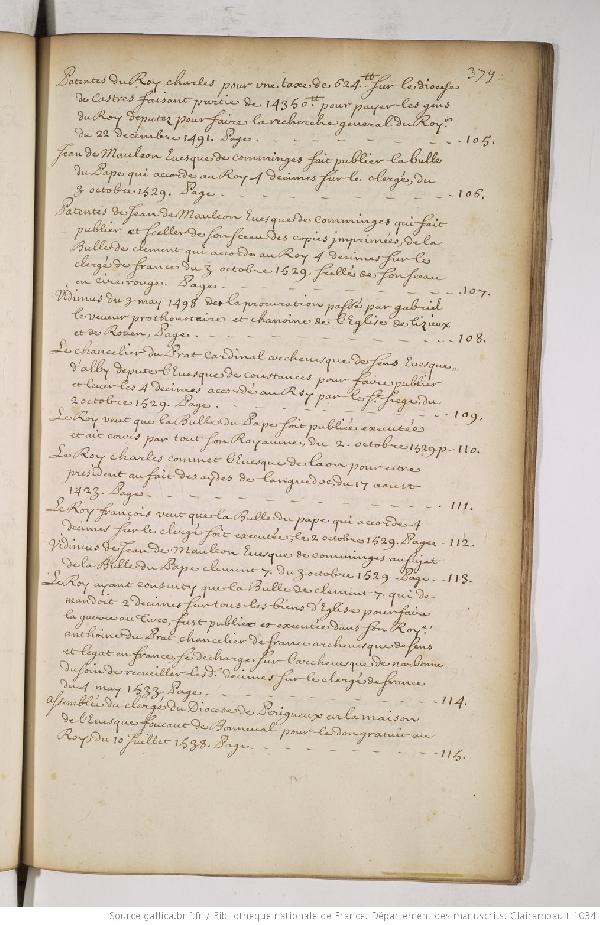 379
Patentes du Roy charles pour vne taxe de 624.tt sur le diocese
de Castres faisant partie de 14350tt pour payer les gens
du Roy deputez pour faire la recherche general du Roy.e
du 22 decembre 1491. Page. - - - - - 105.
Jean de Mauleon Euesque de comminges fait publier la bulle
du Pape qui acorde au Roy 4 decimes sur le clergé, du
3 octobre 1529. Page - - - - - 106.
Patentes de Jean de Mauleon Euesque de Comminges qui fait
publier et sceller de son sceau des copies jmprimées, de la
Bulle de clement qui acorde au Roy 4 decimes sur le
clergé de france du 3 octobre 1529. scellé de son sceau
en cire rouge. Page. - - - - - 107.
Vidimus du 3 may 1498 de la procuration passée par gabriel
le veneur prothonotaire et chanoine de l'Eglise de Lizieux
et de Rouen, Page. - - - - - 108.
Le chancelier du Prat Cardinal archeuesque de sens Euesque
d'alby depute l'Euesque de Coustances pour faire publier
et leuer les 4 decimes acordé au Roy par le st siege, du
2 octobre 1529. Page. - - - - - 109.
Le Roy veut que la Bulle du Pape soit publiée executée
et ait cours par tout son Royaume, du 2. octobre 1529 p - 110.
Le Roy charles commet l'Euesque de laon pour estre
president au fait des aydes de languedoc, du 17 aoust
1423. Page. - - - - - 111.
Le Roy françois veut que la Bulle du pape qui acorde 4
decimes sur le clergé soit executée, le 2 octobre 1529. Page - 112.
Vidimus de Jean de Mauleon Euesque de comminges au sujet
de la Bulle du Pape clement 7. du 3 octobre 1529 Page. - 113.
Le Roy ayant consenty que la Bulle de clement 7. qui de-
mandoit 2 decimes sur tous les biens d'Eglise pour faire
la guerre au Turc, fust publiée et executée dans son Roy.e
anthoine du Prat chancelier de france archeuesque de sens
et legat en france se decharge sur l'archeuesque de narbonne
du soin de recueillir lesd. decimes sur le clergé de france
du 5 may 1533. Page. - - - - - 114.
assemblée du clergé du Diocese de Perigueux en la maison
de l'Euesque foucaut de Bonneual pour le don gratuit au
Roy, du 10 Juillet 1538. Page. - - - - - 115.
Source gallica.bnf.fr / Bibliothèque nationale de France. Département des manuscrits. Clairambault 1034